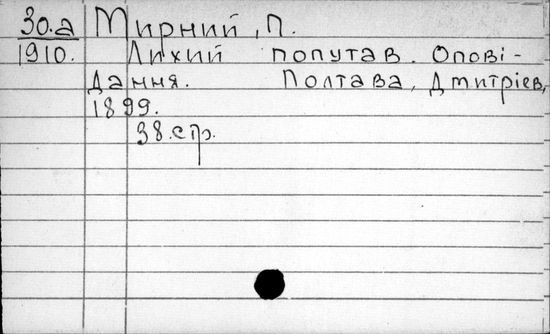 30.а Мирний, П.
1910. Лихий попутав. Опові-
дання. Полтава, Дмитрієв,
1899.
38.стр.